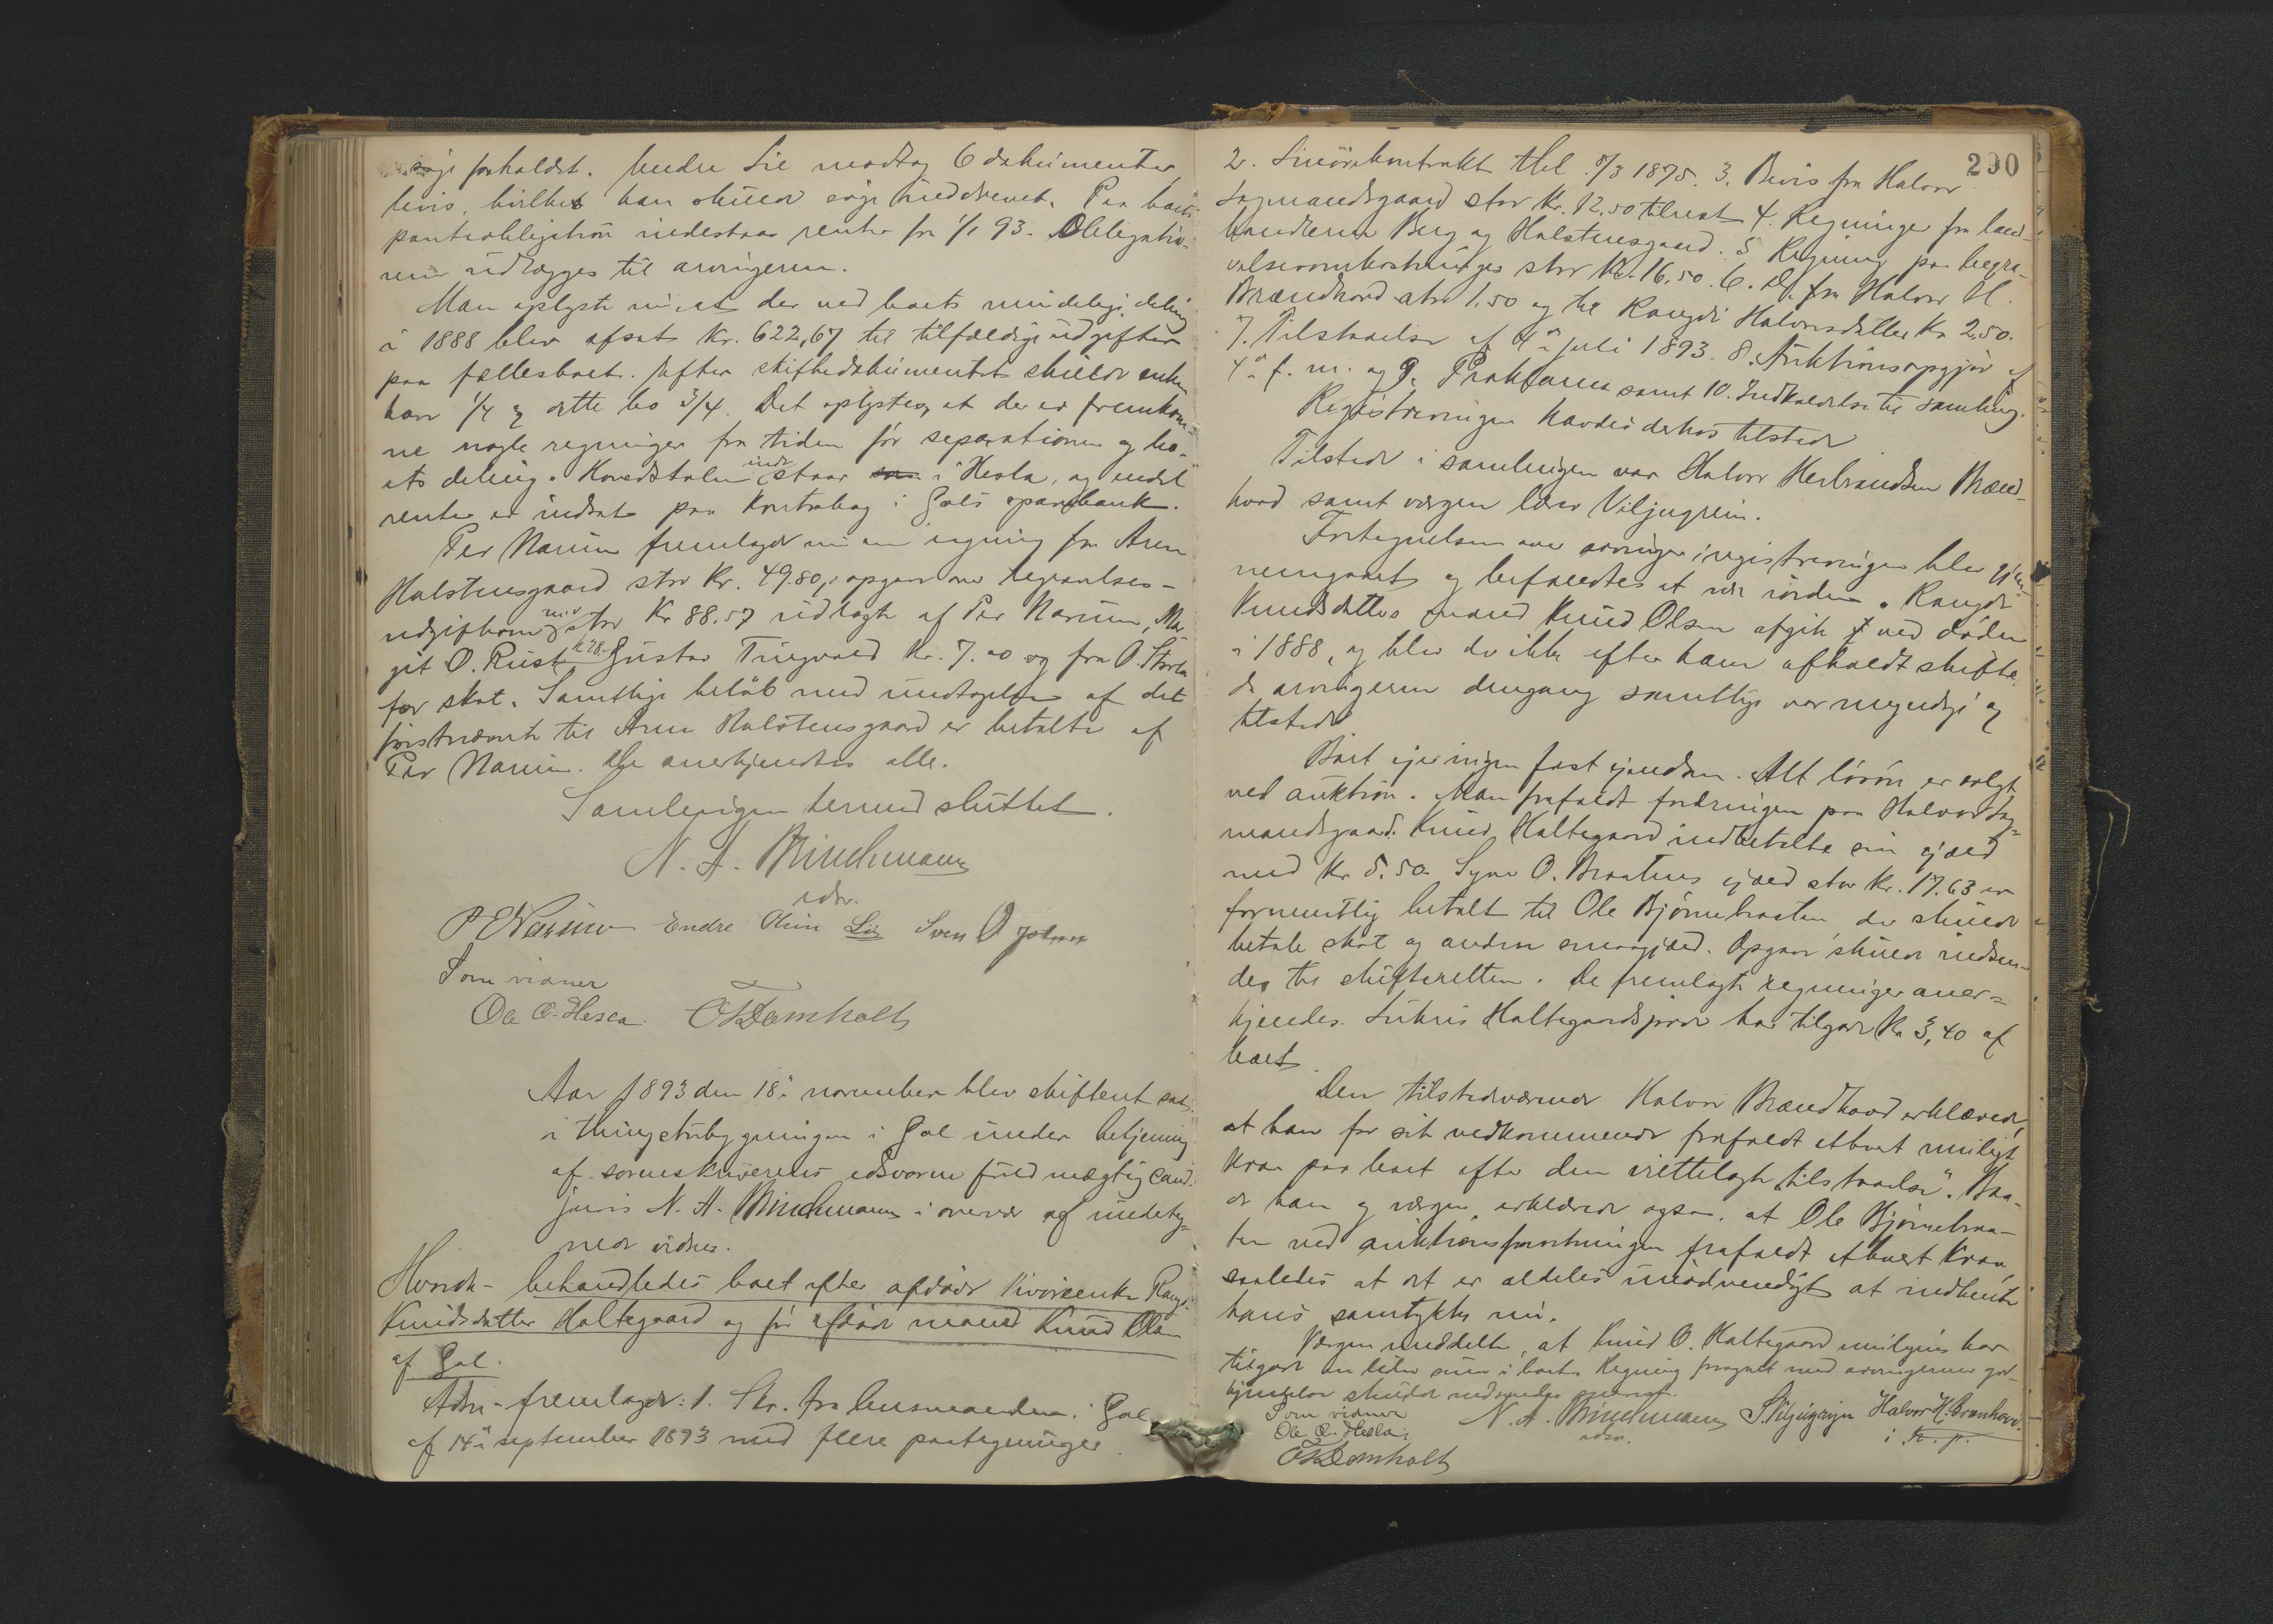 forholdt. Endre Lie modtog 6 dokumenter
bevis, hvilket han skulde søge inddrevet. Paa boets
panteobligation indestaar renter fra 1/1 93. Obligatio-
nen udlægges til arvingerne.
Man oplyste nu at der ved boets mindelige deling
i 1888 blev afsat Kr. 622,67 til tilfældige udgifter
paa fællesboet. Efter skiftedokumentet skulde enken
have 1/4 og dette bo 3/4. Det oplystes, at der er fremkom-
ne nogle regninger fra tiden før separationen og bo-
ets deling. Hovedstolen indestaar i Hesla, og endel
renter er indsat paa Kontrabog i Gols sparebank.
Per Narum fremlagde nu en regning fra Arne
Halstensgaard stor Kr. 49.80, opgave over begravelses-
udgifterne m.v. stor Kr 88.57 udlagte af Per Narum, Ma-
git O. Rust K 28.- Gustav Trugvold Kr. 7.00 og fra O. Storla
for skat. Samtlige beløb med undtagelse af det
førstnævnte til Arne Halstensgaard er betalte af
Per Narum. De anerkjendtes alle.
Samlingen dermed sluttet.
N. A. Brinchmann
edsv.
P E Narum Endre Olsen Lie Sven O
Som vidner
Ole O. Hesla. O K Domholt
Aar 1893 den 18de november blev skifteret sat
i thingstubygningen i Gol under betjening
af sorenskriverens edsvorne fuldmægtig cand.
juris N. A. Brinchmann i overvær af undeteg-
nede vidner.
Hvorda- behandledes boet efter afdøde Rangdi
Knudsdatter Haltegaard og før afdøde mand Knud Olsen
af Gol.
Adm- fremlagde: 1. Skr. fra lensmanden i Gol
af 14de september 1893 med flere paategninger.
290
2. Livørekontrakt thl. 8/3 1875. 3. Bevis fra Halvor
Sagmandsgaard stor Kr. 12,50 tilrest 4. Regninger fra land-
handlerne Berg og Halstensgaard. 5 Regning paa begra-
velsesomkostninger stor Kr. 16,50. 6. Do. fra Halvor H.
Brændhovd stor 1.50 og til Rangdi Halvorsdatter Kr 2,50.
7. Tilstaaelse af 4de juli 1893. 8. Auktionsopgjør af
4de f. m. og 9. Proklama samt 10. Indkaldelse til samling.
Registreringen havdes derhos tilstede
Tilstede i samlingen var Halvor Herbrandsen Brænd-
hovd samt værgen lærer Viljugrein.
Fortegnelsen over arvinger i registreringen blev gjen-
nemgaaet og befandtes at være i orden. Rangdi
Knudsdatters mand Knud Olsen afgik ved døden
i 1888, og blev der ikke efter ham afholdt skifte,
da arvingerne dengang samtlige var myndige og
tilstede
Boet eier ingen fast eiendom. Alt løsøre er solgt
ved auktion. Man frafaldt fordringen paa Halvor Sag-
mandsgaard. Knud Haltegaard indbetalte sin gjæld
med Kr 5.50. Syver O. Braatens gjæld stor Kr. 17.63 er
formentlig betalt til Ole Bjørnebraaten, der skulde
betale skat og anden smaagjæld. Opgave skulde indsen-
des til skifteretten. De fremlagte regninger aner-
kjendes. Haltegaards har tilgode Kr 3,40 af
boet.
Den tilstedeværende Halvor Brændhovd erklærede,
at han for sit vedkommende frafaldt ethvert muligt
Krav paa boet efter den irettelagte "tilstaaelse". Baa-
de han og værgen erklærede ogsaa, at Ole Bjørnebraa-
ten ved auktionsforretningen frafaldt ethvert Krav,
saaledes at det er aldeles unødvendigt at indhente
hans samtykke nu.
Værgen meddelte, at Knud O. Haltegaard muligens har
tilgode en liden sum i boet. Regning forsynet med arvingernes god-
kjendelse skulde indsendes
Som vidner
Ole O. Hesla
O K Domholt
N. A. Brinchmann
edsv.
S. Viljugrein Halvor H. Brænhovd.
i h. p.